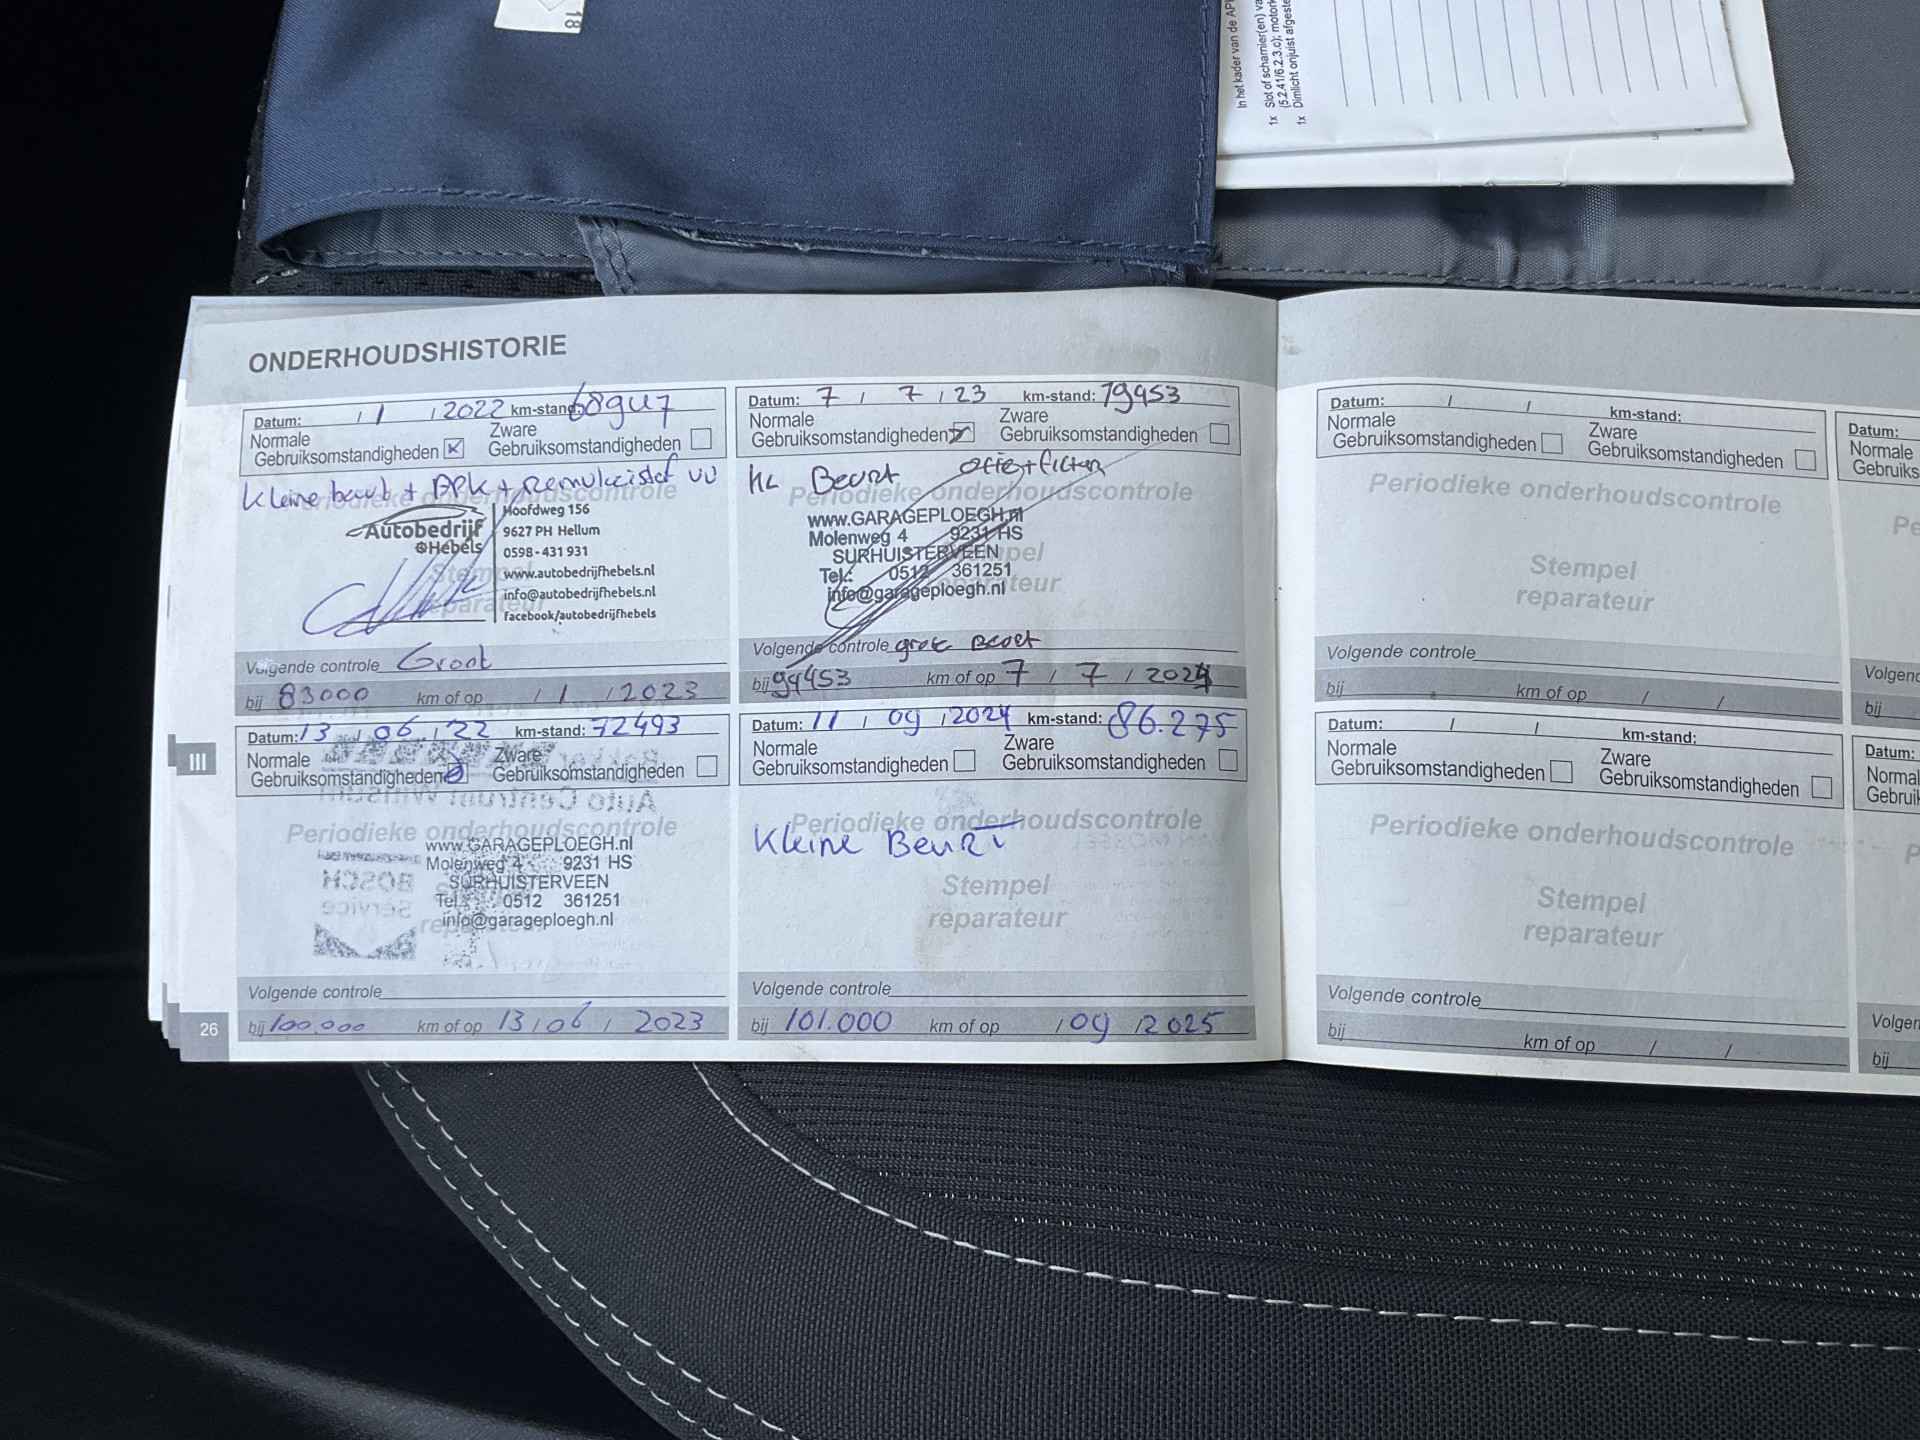 18
In het kader van de AP
1x Slot of scharnier(en) va
(5.2.41/6.2.3.c); motork
1x Dimlicht onjuist afgeste
ONDERHOUDSHISTORIE
Datum: / 1 / 2022 km-stand: 68947
Normale Gebruiksomstandigheden
Zware Gebruiksomstandigheden
Kleine beurt + APK + Remvloeistof vv
Periodieke onderhoudscontrole
Autobedrijf Hebels
Hoofdweg 156
9627 PH Hellum
0598-431 931
www.autobedrijfhebels.nl
info@autobedrijfhebels.nl
facebook/autobedrijfhebels
Stempel
reparateur
Volgende controle Groot
bij 83000 km of op / 1 / 2023
Datum: 7 / 7 / 23 km-stand: 79453
Normale Gebruiksomstandigheden
Zware Gebruiksomstandigheden
KL Beurt olie+filter
Periodieke onderhoudscontrole
www.GARAGEPLOEGH.nl
Molenweg 4 9231 HS
SURHUISTERVEEN
Tel.: 0512 361251
info@garageploegh.nl
Stempel
reparateur
Volgende controle grote Beurt
bij 99453 km of op 7 / 7 / 2024
Datum: 13 / 06 / 22 km-stand: 72493
Normale Gebruiksomstandigheden
Zware Gebruiksomstandigheden
Periodieke onderhoudscontrole
www.GARAGEPLOEGH.nl
Molenweg 4 9231 HS
SURHUISTERVEEN
Tel.: 0512 361251
info@garageploegh.nl
BOSCH
Service
Volgende controle
bij 100.000 km of op 13 / 06 / 2023
Datum: 11 / 09 / 2024 km-stand: 86.275
Normale Gebruiksomstandigheden
Zware Gebruiksomstandigheden
Periodieke onderhoudscontrole
Kleine Beurt
Stempel
reparateur
Volgende controle
bij 101.000 km of op / 09 / 2025
III
26
Datum: / / km-stand:
Normale Gebruiksomstandigheden
Zware Gebruiksomstandigheden
Periodieke onderhoudscontrole
Stempel
reparateur
Volgende controle
bij km of op / /
Datum: / / km-stand:
Normale Gebruiksomstandigheden
Zware Gebruiksomstandigheden
Periodieke onderhoudscontrole
Stempel
reparateur
Volgende controle
bij km of op / /
Datum:
Normale
Gebruiks
Pe
Volgen
bij
Datum:
Normal
Gebruik
P
Volgen
bij